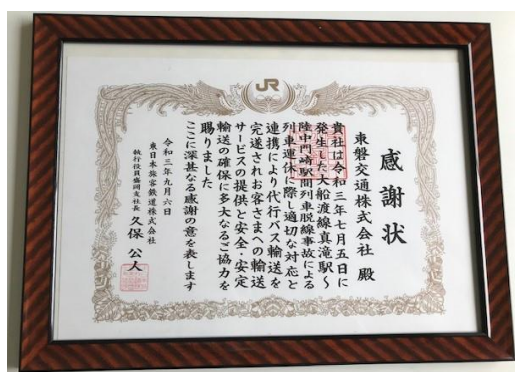 JR
感謝状
東磐交通株式会社 殿
貴社は令和三年七月五日に
発生した大船渡線真滝駅〜
陸中門崎駅間列車脱線事故による
列車運休に際し適切な対応と
連携により代行バス輸送を
完遂されお客さまへの輸送
サービスの提供と安全・安定
輸送の確保に多大なるご協力を
賜りました
ここに深甚なる感謝の意を表します
令和三年九月六日
東日本旅客鉄道株式会社
執行役員盛岡支社長 久保 公人